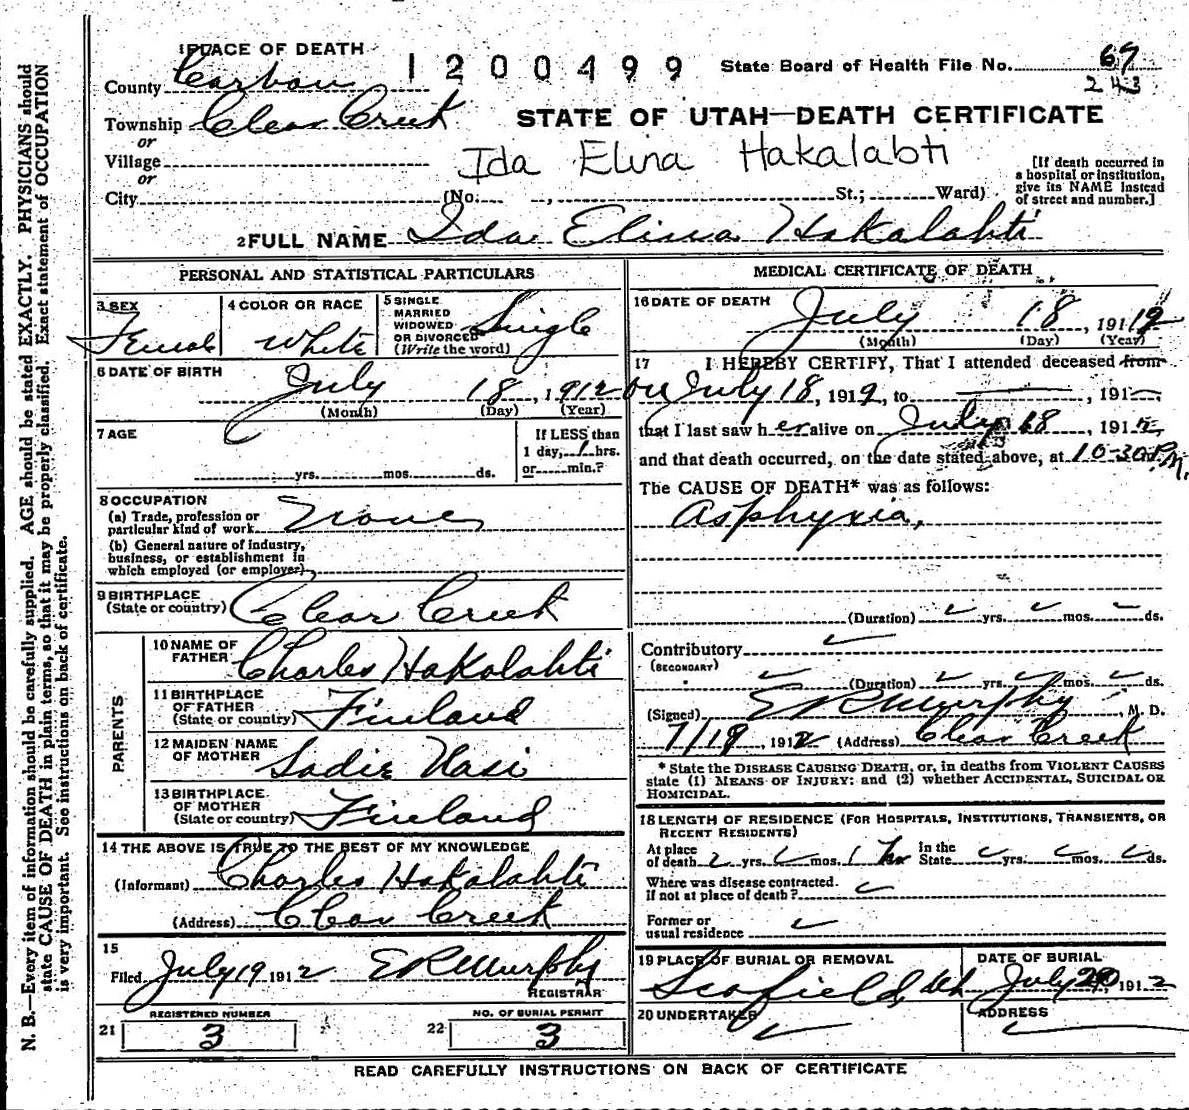 1 PLACE OF DEATH
County Carbon
1200499
State Board of Health File No. 67
243
Township Clear Creek
STATE OF UTAH—DEATH CERTIFICATE
or
Village
Ida Elina Hakalabti
[If death occurred in
a hospital or institution,
give its NAME instead
of street and number.]
or
City (No. , St.; Ward)
2 FULL NAME Ida Elina Hakalahti
PERSONAL AND STATISTICAL PARTICULARS
3 SEX
Female
4 COLOR OR RACE
White
5 SINGLE
MARRIED
WIDOWED
OR DIVORCED
(Write the word)
Single
6 DATE OF BIRTH
July 18, 1912
(Month) (Day) (Year)
7 AGE
yrs. mos. ds.
If LESS than
1 day, 1 hrs.
or min.?
8 OCCUPATION
(a) Trade, profession or
particular kind of work None
(b) General nature of industry,
business, or establishment in
which employed (or employer)
9 BIRTHPLACE
(State or country) Clear Creek
PARENTS
10 NAME OF
FATHER Charles Hakalahti
11 BIRTHPLACE
OF FATHER
(State or country) Finland
12 MAIDEN NAME
OF MOTHER Sadie Hasi
13 BIRTHPLACE
OF MOTHER
(State or country) Finland
14 THE ABOVE IS TRUE TO THE BEST OF MY KNOWLEDGE
(Informant) Charles Hakalahti
(Address) Clear Creek
15
Filed July 19 1912 E R Murphy
REGISTRAR
REGISTERED NUMBER
21 3
NO. OF BURIAL PERMIT
22 3
MEDICAL CERTIFICATE OF DEATH
16 DATE OF DEATH
July 18, 1912
(Month) (Day) (Year)
17 I HEREBY CERTIFY, That I attended deceased from
on July 18, 1912, to , 191
that I last saw her alive on July 18, 1912,
and that death occurred, on the date stated above, at 10-30 P.M.
The CAUSE OF DEATH* was as follows:
Asphyxia,
(Duration) yrs. mos. ds.
Contributory
(SECONDARY)
(Duration) yrs. mos. ds.
(Signed) E R Murphy, M. D.
7/19, 1912 (Address) Clear Creek
* State the DISEASE CAUSING DEATH, or, in deaths from VIOLENT CAUSES
state (1) MEANS OF INJURY: and (2) whether ACCIDENTAL, SUICIDAL OR
HOMICIDAL.
18 LENGTH OF RESIDENCE (FOR HOSPITALS, INSTITUTIONS, TRANSIENTS, OR
RECENT RESIDENTS)
At place
of death yrs. mos. 1 hr In the
State yrs. mos. ds.
Where was disease contracted.
if not at place of death?
Former or
usual residence
19 PLACE OF BURIAL OR REMOVAL
Scofield Ut
DATE OF BURIAL
July 20, 1912
20 UNDERTAKER
ADDRESS
READ CAREFULLY INSTRUCTIONS ON BACK OF CERTIFICATE
N. B.—Every item of information should be carefully supplied. AGE should be stated EXACTLY. PHYSICIANS should
state CAUSE OF DEATH in plain terms, so that it may be properly classified. Exact statement of OCCUPATION
is very important. See instructions on back of certificate.